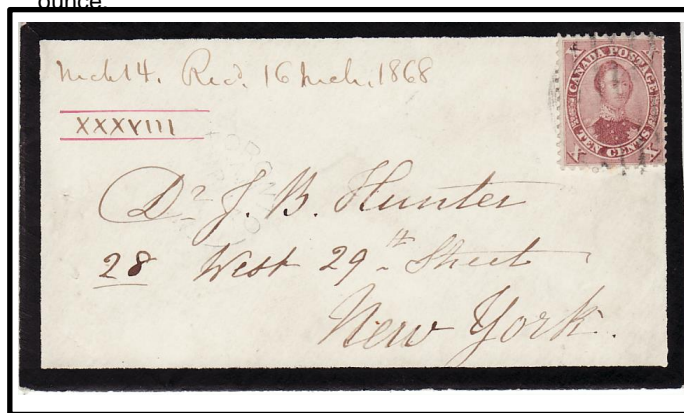 ounce.
Mch 14. Recd. 16 Mch. 1868
XXXVIII
CANADA POSTAGE
TEN CENTS
Dr. J. B. Hunter
28 West 29th Street
New York.